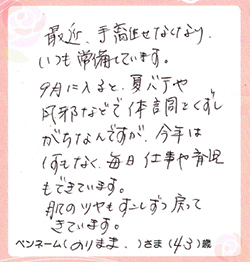 最近、手離せなくなり、
いつも常備しています。
9月に入ると、夏バテや
風邪などで体調をくずし
がちなんですが、今年は
それもなく、毎日仕事や育児
もできています。
肌のツヤもすこしずつ戻って
きています。
ペンネーム(のりまま.)さま(43)歳